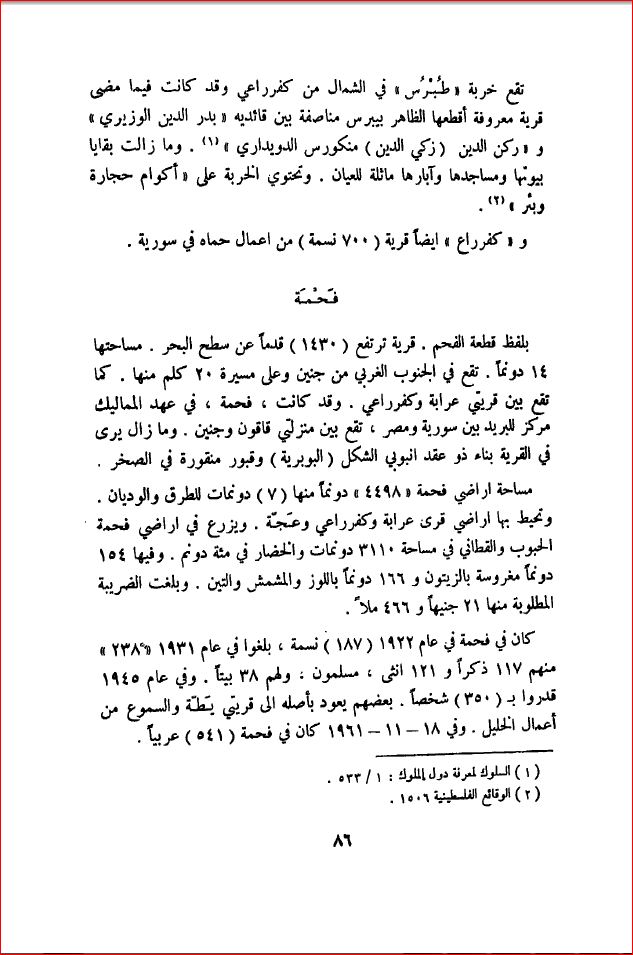 تقع خربة « طُبْرُس » في الشمال من كفرراعي وقد كانت فيما مضى
قرية معروفة أقطعها الظاهر بيبرس مناصفة بين قائديه « بدر الدين الوزيري »
و « ركن الدين ( زكي الدين ) منكورس الدويداري » (١) . وما زالت بقايا
بيوتها ومساجدها وآبارها ماثلة للعيان . وتحتوي الخربة على « أكوام حجارة
وبئر » (٢) .
و « كفرراع » ايضاً قرية ( ٧٠٠ نسمة ) من اعمال حماه في سورية .
فَحْمَة
بلفظ قطعة الفحم . قرية ترتفع ( ١٤٣٠ ) قدماً عن سطح البحر . مساحتها
١٤ دونماً . تقع في الجنوب الغربي من جنين وعلى مسيرة ٢٠ كلم منها . كما
تقع بين قريتي عرابة وكفرراعي . وقد كانت ، فحمة ، في عهد المماليك
مركز للبريد بين سورية ومصر ، تقع بين منزلتي قاقون وجنين . وما زال يرى
في القرية بناء ذو عقد انبوبي الشكل ( البوبرية ) وقبور منقورة في الصخر .
مساحة اراضي فحمة « ٤٤٩٨ » دونماً منها ( ٧ ) دونمات للطرق والوديان .
وتحيط بها اراضي قرى عرابة وكفرراعي وعَنجَّة . ويزرع في اراضي فحمة
الحبوب والقطاني في مساحة ٣١١٠ دونمات والخضار في مئة دونم . وفيها ١٥٤
دونماً مغروسة بالزيتون و ١٦٦ دونماً باللوز والمشمش والتين . وبلغت الضريبة
المطلوبة منها ٢١ جنيهاً و ٤٦٦ ملاً .
كان في فحمة في عام ١٩٢٢ ( ١٨٧ ) نسمة ، بلغوا في عام ١٩٣١ « ٢٣٨ »
منهم ١١٧ ذكراً و ١٢١ انثى ، مسلمون ، ولهم ٣٨ بيتاً . وفي عام ١٩٤٥
قدروا بـ ( ٣٥٠ ) شخصاً . بعضهم يعود بأصله الى قريتي يَطّة والسموع من
أعمال الخليل . وفي ١٨ – ١١ – ١٩٦١ كان في فحمة ( ٥٤١ ) عربياً .
( ١ ) السلوك لمعرفة دول الملوك : ١ / ٥٣٣ .
( ٢ ) الوقائع الفلسطينية ١٥٠٦ .
٨٦